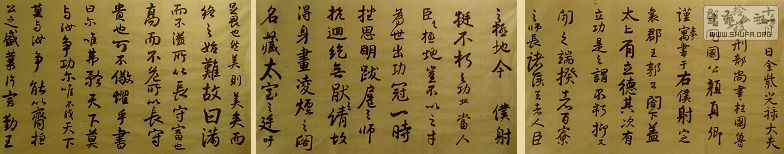 日金紫光祿大夫
刑部尚書上柱國魯
國公顏真卿
謹奉書于右僕射定
襄郡王郭公閣下蓋
太上有立德其次有
立功是之謂不朽抑又
聞之端揆者百寮
之師長諸侯王者人臣
之極地今僕射
挺不朽之功業當人
臣之極地豈不以才
為世出功冠一時
挫思明跋扈之師
抗迴紇無厭之請故
得身畫凌煙之閣
名藏太室之廷吁
足畏也然美則美矣而
終之始難故曰滿
而不溢所以長守富也
高而不危所以長守
貴也可不儆懼乎書
曰爾唯弗矜天下莫
與汝爭功爾唯不伐天下
莫與汝爭能以齊桓
公之盛業片言勤王
WWW.SHUFA.ORG